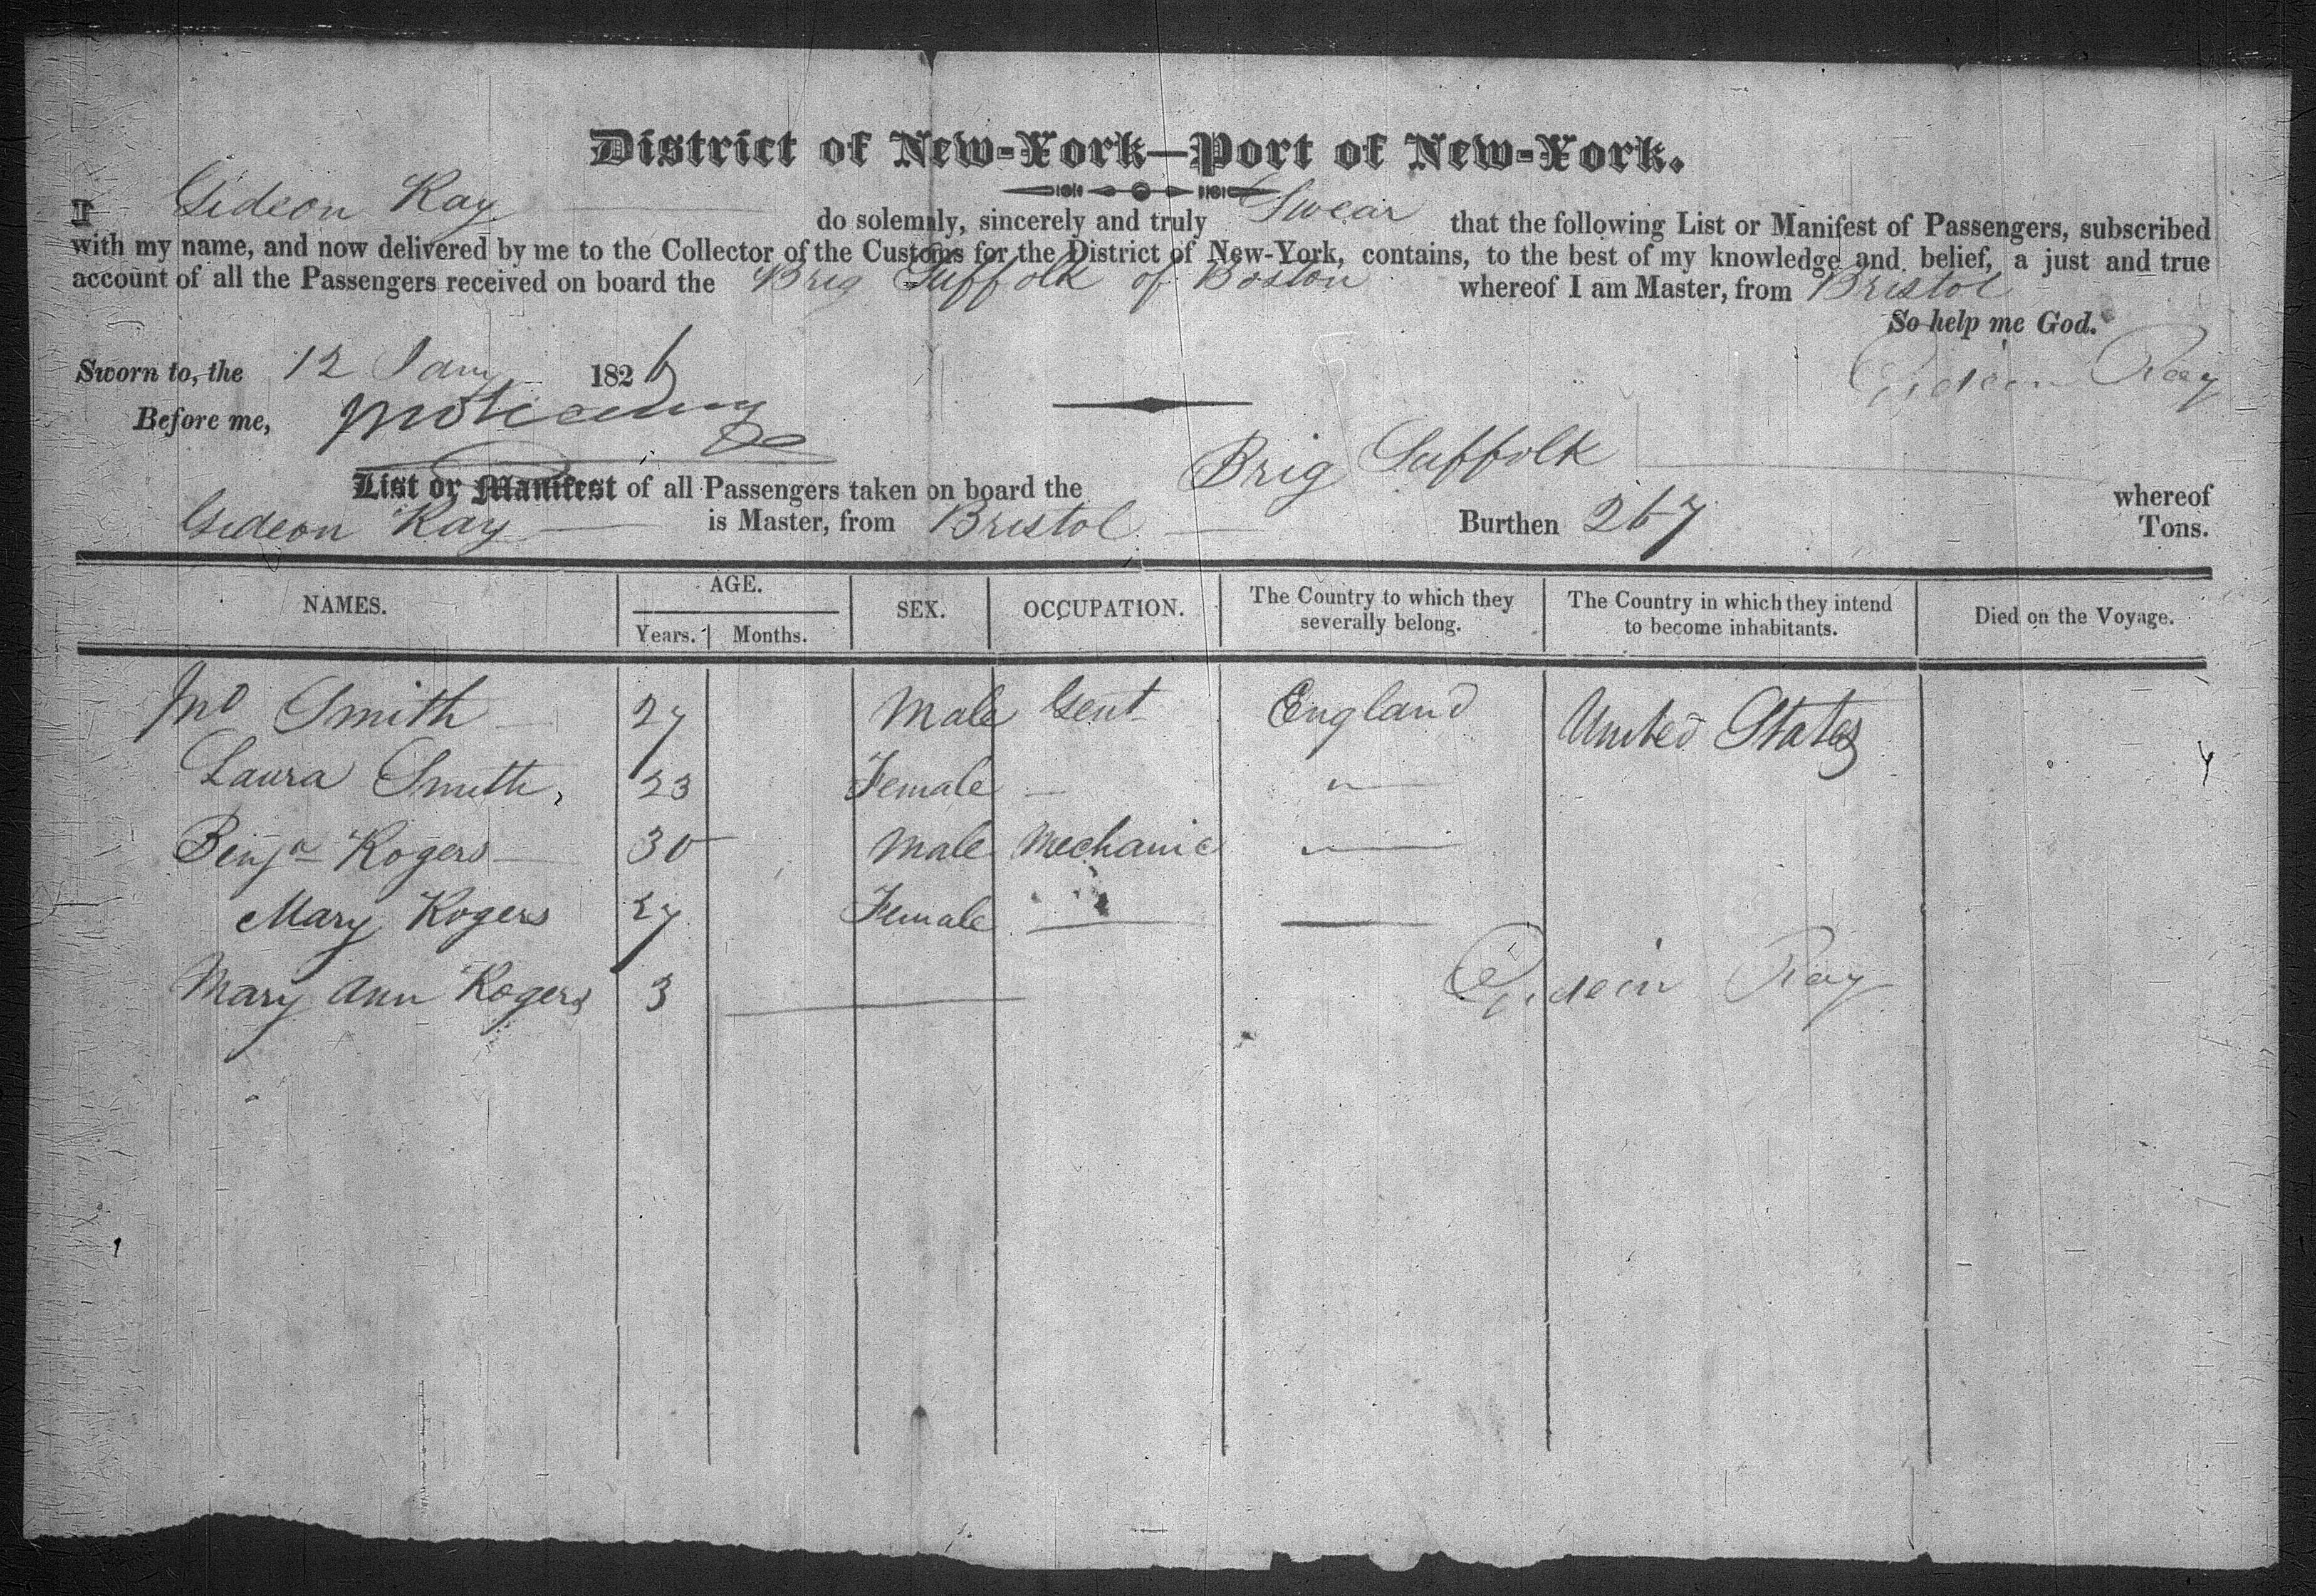 District of New-York—Port of New-York.
I Gideon Ray do solemnly, sincerely and truly Swear that the following List or Manifest of Passengers, subscribed
with my name, and now delivered by me to the Collector of the Customs for the District of New-York, contains, to the best of my knowledge and belief, a just and true
account of all the Passengers received on board the Brig Suffolk of Boston whereof I am Master, from Bristol
So help me God.
Sworn to, the 12 Jany 1826 Gideon Ray
Before me,
List or Manifest of all Passengers taken on board the Brig Suffolk whereof
Gideon Ray is Master, from Bristol Burthen 267 Tons.
NAMES. AGE. Years. Months. SEX. OCCUPATION. The Country to which they severally belong. The Country in which they intend to become inhabitants. Died on the Voyage.
Jno Smith 27 Male Gent England United States
Laura Smith, 23 Female — "
Benja Rogers 30 Male Mechanic "
Mary Rogers 27 Female — —
Mary Ann Rogers 3 — Gideon Ray